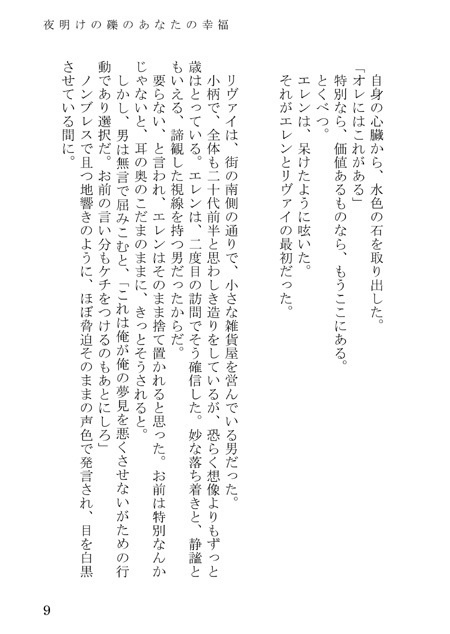 夜明けの礫のあなたの幸福
自身の心臓から、水色の石を取り出した。
「オレにはこれがある」
特別なら、価値あるものなら、もうここにある。
とくべつ。
エレンは、呆けたように呟いた。
それがエレンとリヴァイの最初だった。
リヴァイは、街の南側の通りで、小さな雑貨屋を営んでいる男だった。
小柄で、全体も二十代前半と思わしき造りをしているが、恐らく想像よりもずっと
歳はとっている。エレンは、二度目の訪問でそう確信した。妙な落ち着きと、静謐と
もいえる、諦観した視線を持つ男だったからだ。
要らない、と言われ、エレンはそのまま捨て置かれると思った。お前は特別なんか
じゃないと、耳の奥のこだまのままに、きっとそうされると。
しかし、男は無言で屈みこむと、「これは俺が俺の夢見を悪くさせないがための行
動であり選択だ。お前の言い分もケチをつけるのもあとにしろ」
ノンブレスで且つ地響きのように、ほぼ脅迫そのままの声色で発言され、目を白黒
させている間に。
9